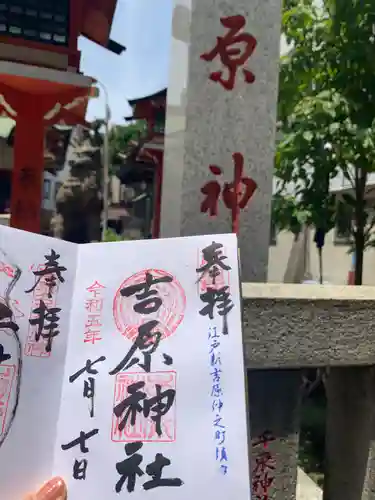 原
神
奉拝
奉拝
令和五年
七月七日
吉原神社
江戸新吉原仲之町鎮
千束